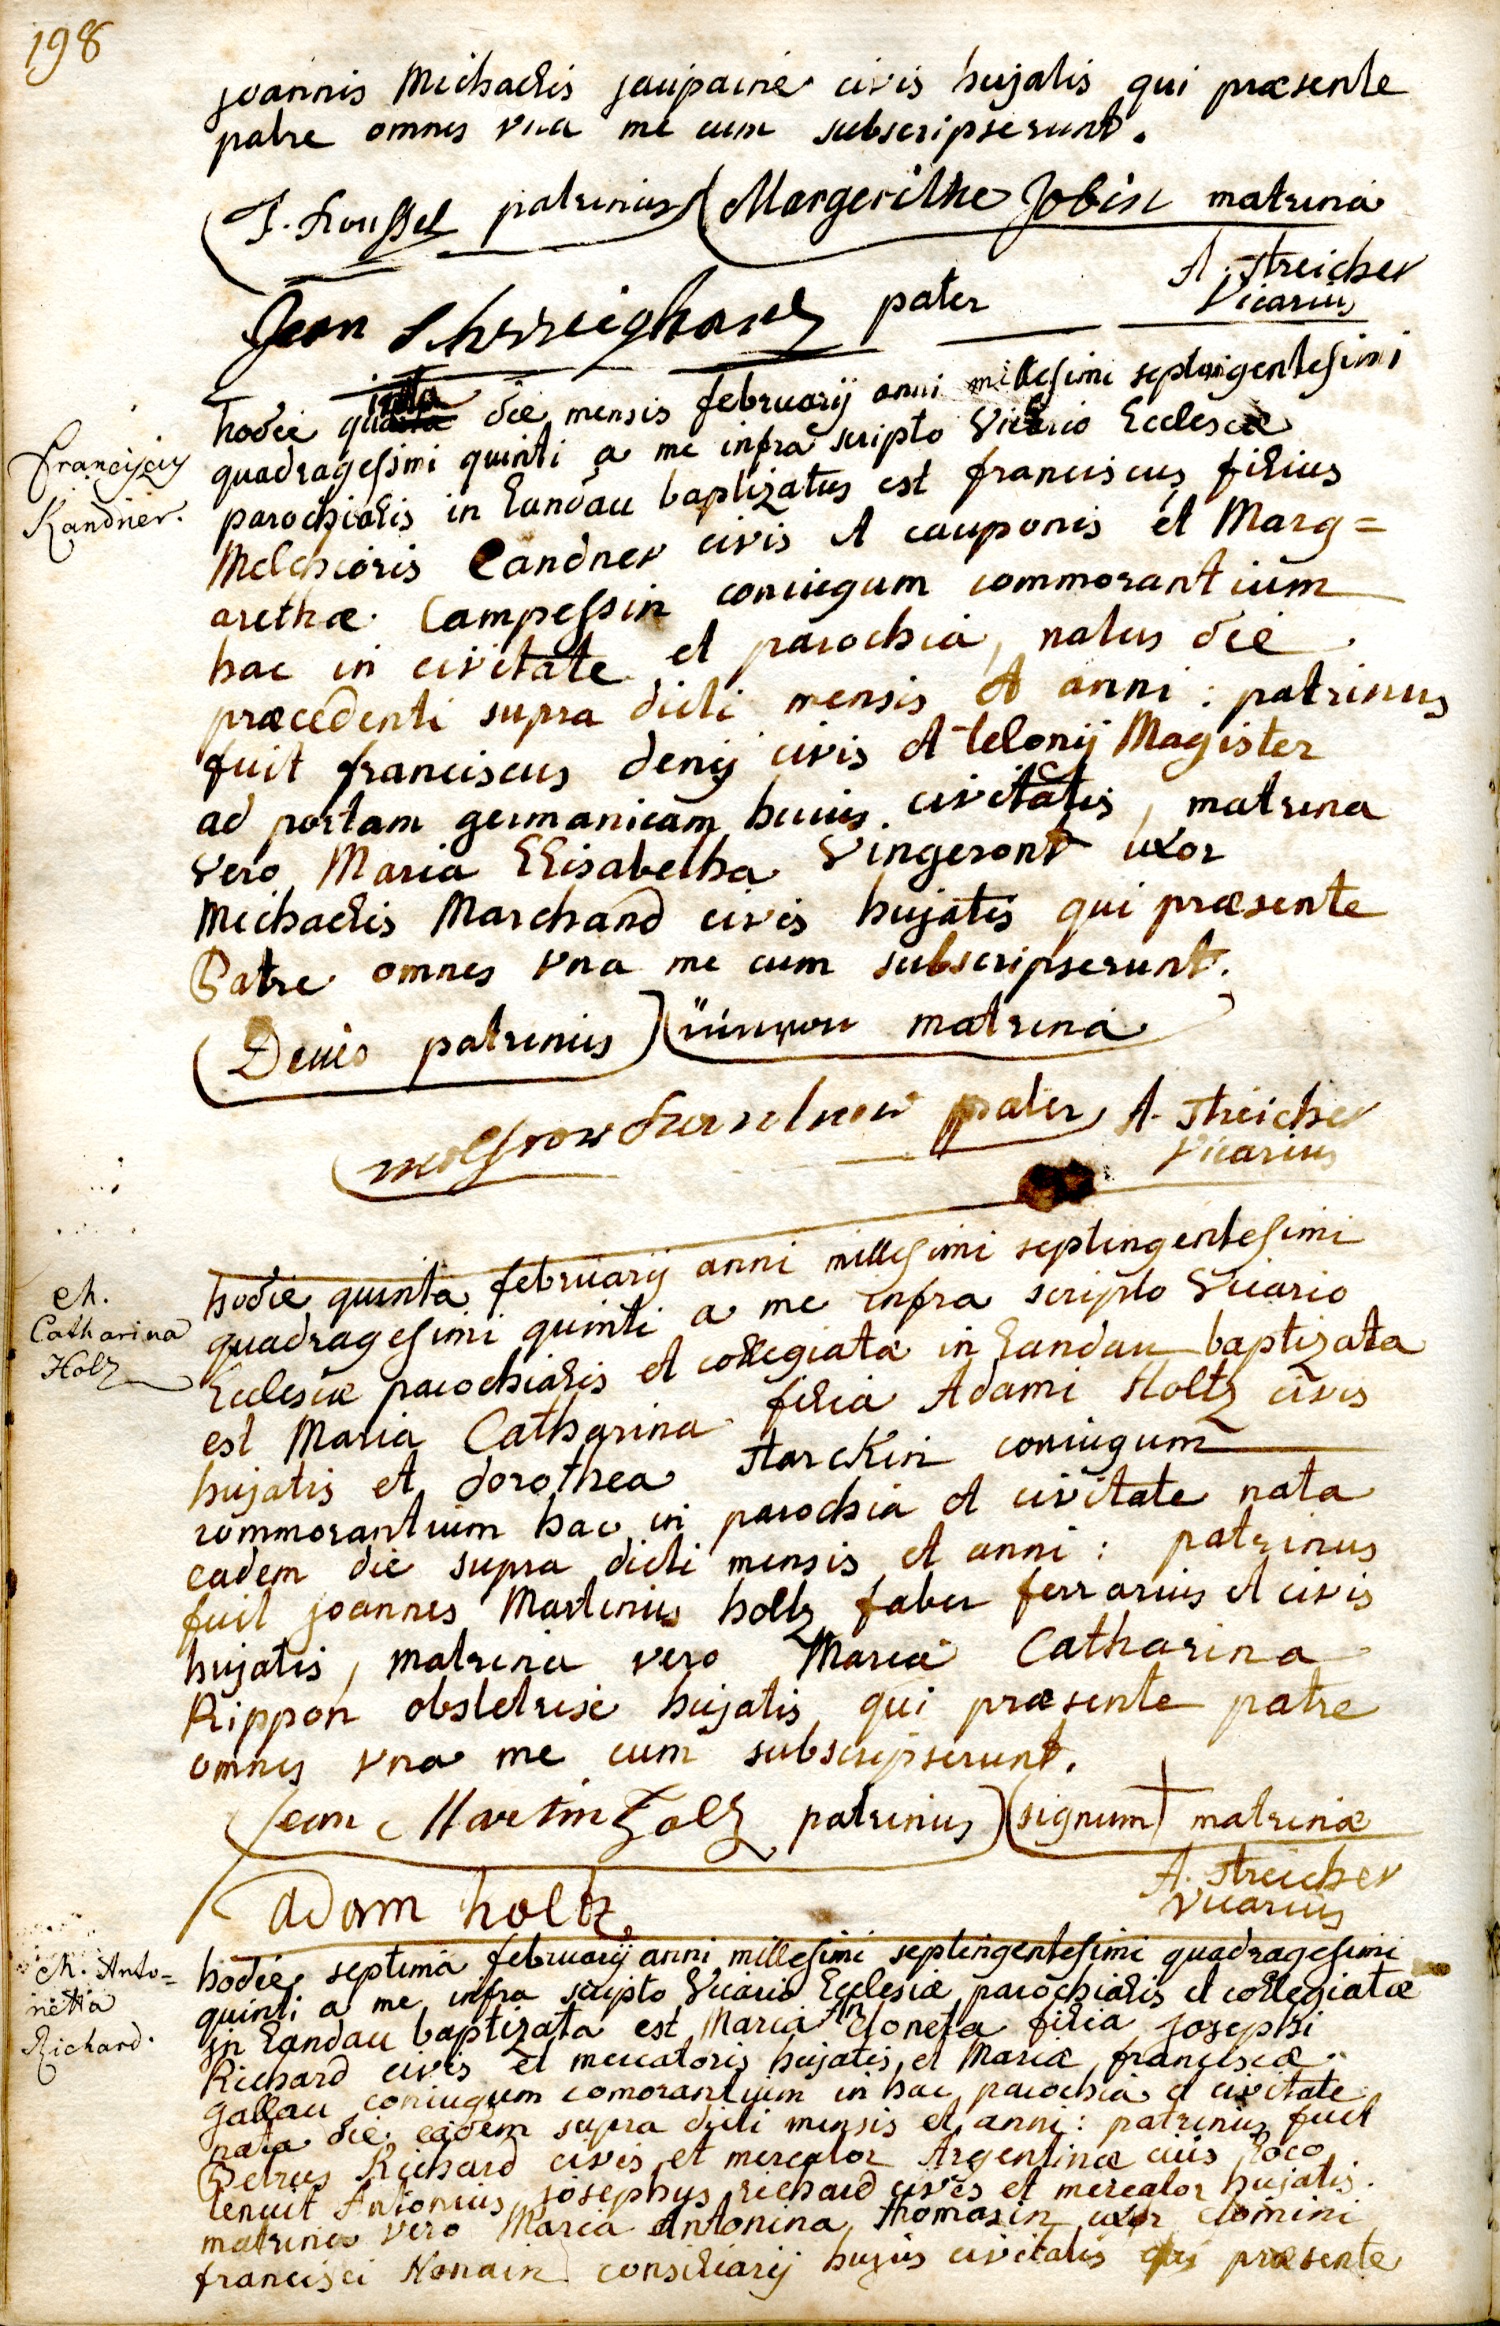 198
joannis Michaelis jaupaine civis hujatis qui præsente
patre omnes vna me cum subscripserunt.
J. Roussel patrinus Margerithe Jobin matrina
A. Streicher
Vicarius
Jean pater
hodie die mensis februarij anni millesimi septuigentesimi
quadragesimi quinti a me infra scripto Vicario Ecclesiæ
Franciscus
Kandner.
parochialis in Landau baptizatus est franciscus filius
Melchioris Candner civis et cauponis et Marg=
arethæ Campessin coniugum commorantium
hac in civitate et parochia, natus die
præcedenti supra dicti mensis et anni: patrinus
fuit franciscus denij civis et telonij Magister
ad portam germanicam huius civitatis, matrina
vero Maria Elisabetha Vingeront uxor
Michaelis Marchand civis hujatis qui præsente
Patre omnes vna me cum subscripserunt.
patrinus matrina
pater A. Streicher
Vicarius
hodie quinta februarij anni millesimi septingentesimi
quadragesimi quinti a me infra scripto Vicario
M.
Catharina
Holz
Ecclesiæ parochialis et collegiatæ in Landau baptizata
est Maria Catharina filia Adami Holtz civis
hujatis et dorothea Starckin coniugum
commorantium hac in parochia et civitate nata
eadem die supra dicti mensis et anni: patrinus
fuit joannes Martinus holtz faber ferrarius et civis
hujatis, matrina vero Maria Catharina
Rippon obstetrix hujatis qui præsente patre
omnes vna me cum subscripserunt.
Jean Martin Holtz patrinus signum matrinæ
A. Streicher
Vicarius
Adam holtz
hodie septima februarij anni millesimi septingentesimi quadragesimi
M. Anto=
netta
Richard.
quinti a me infra scripto Vicario Ecclesiæ parochialis et collegiatæ
in Landau baptizata est Maria Antoneta filia josephi
Richard civis et mercatoris hujatis, et Mariæ franciscæ
gallau coniugum comorantium in hac parochia et civitate
nata die eadem supra dicti mensis et anni: patrinus fuit
Petrus Richard civis et mercator Argentinæ cuis loco
tenuit Antonius josephus richard civis et mercator hujatis.
matrina vero Maria Antonina thomasin uxor domini
francisci Nonain consiliarij hujus civitatis qui præsente